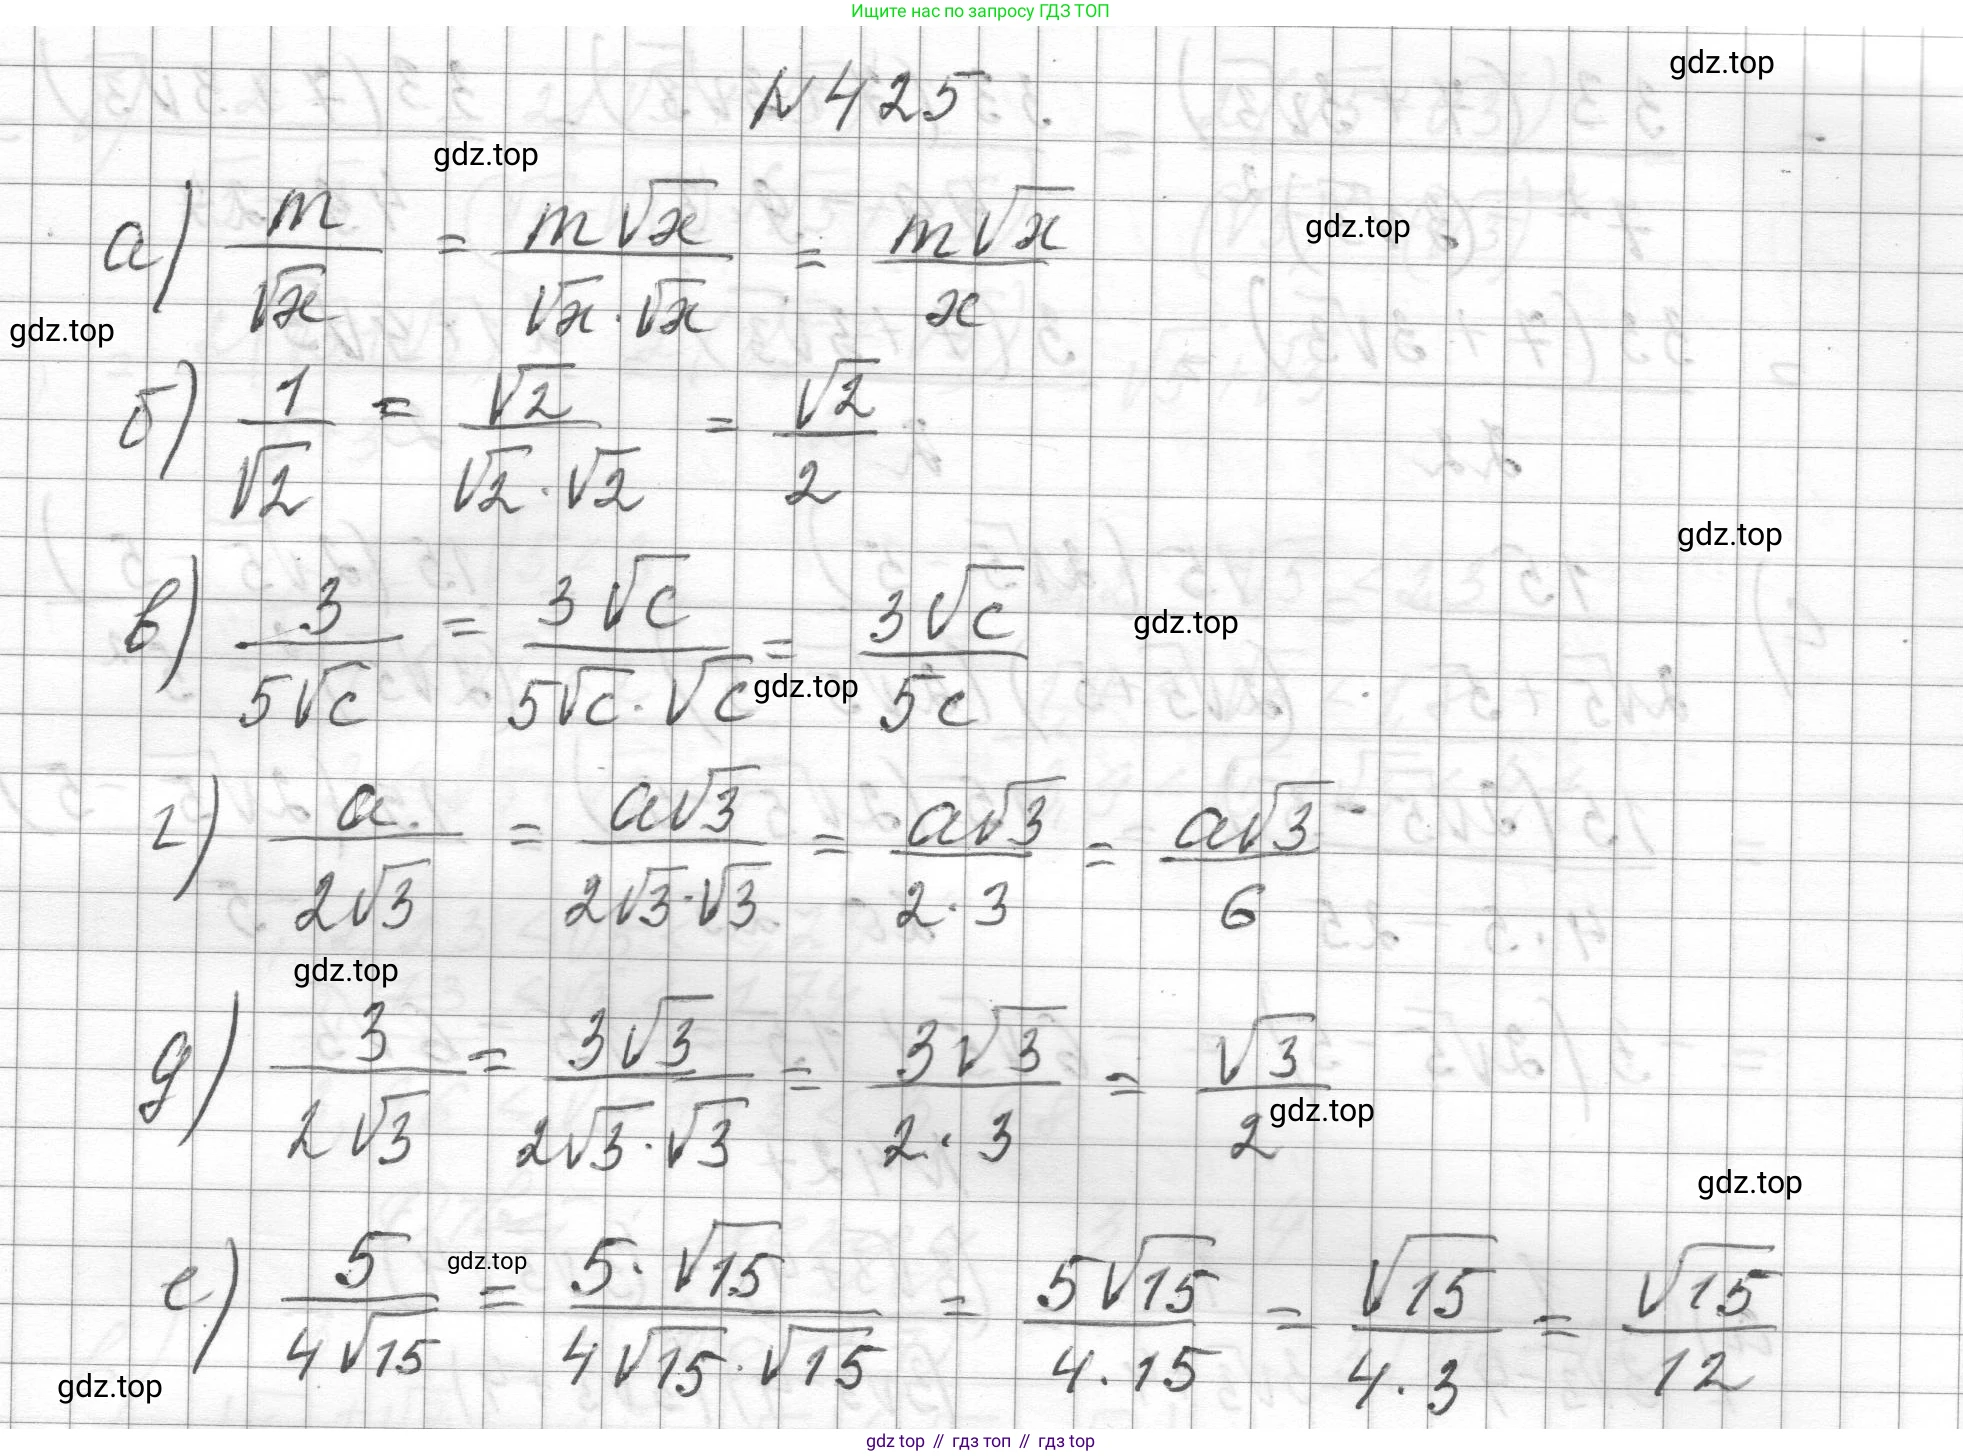 Ищите нас по запросу ГДЗ ТОП
gdz.top
N 425.
gdz.top
а) m/√x = m√x/(√x·√x) = m√x/x
gdz.top
gdz.top
б) 1/√2 = √2/(√2·√2) = √2/2
gdz.top
в) 3/(5√c) = 3√c/(5√c·√c) = 3√c/(5c)
gdz.top
gdz.top
г) a/(2√3) = a√3/(2√3·√3) = a√3/(2·3) = a√3/6
gdz.top
д) 3/(2√3) = 3√3/(2√3·√3) = 3√3/(2·3) = √3/2
gdz.top
gdz.top
е) 5/(4√15) = 5·√15/(4√15·√15) = 5√15/(4·15) = √15/(4·3) = √15/12
gdz.top
gdz.top
gdz top // гдз топ // гдз top